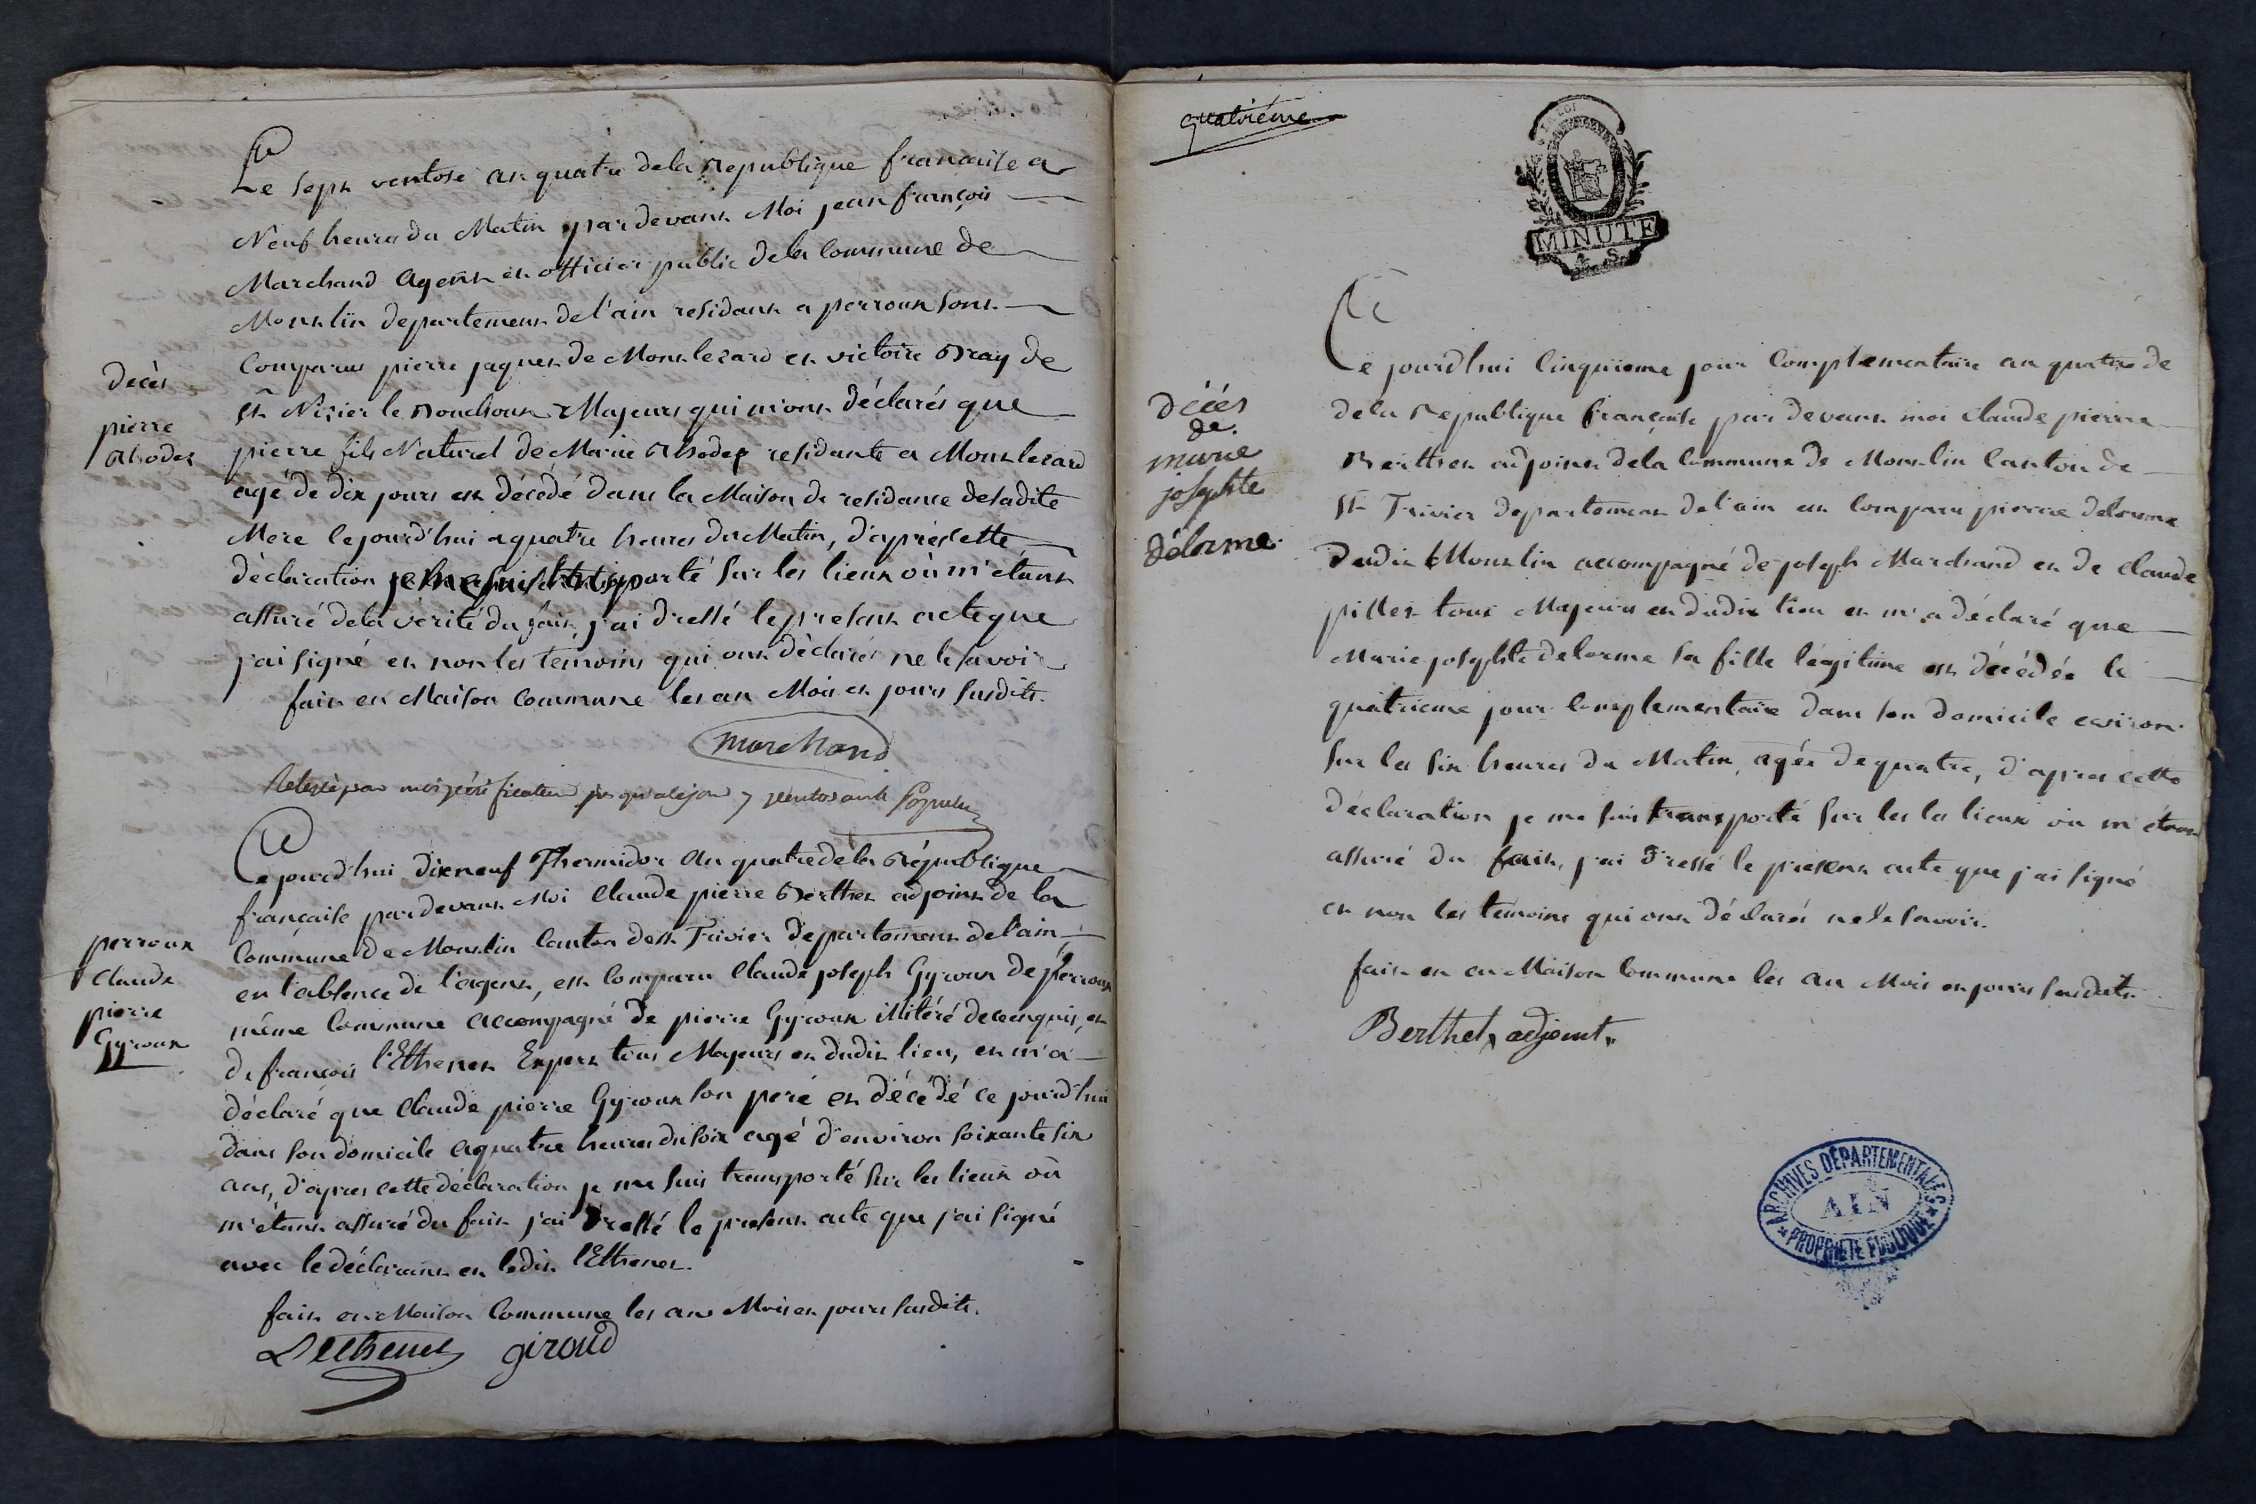 Le sept ventose an quatre de la Republique francaise a
Neuf heures du Matin par devant Moi jean françois
Marchand Agent et officier public de la Commune de
Montlin departement de l'ain residant a perroux sont
Comparus pierre jaques de Montlezard et victoire Bray de
St. Nizier le Bouchoux Majeurs qui m'ont déclarés que
pierre fils Naturel de Marie Rhodes residante a Montlezard
agé de dix jours est décédé dans la Maison de residance de sadite
Mere cejourd'hui a quatre heures du Matin, d'après cette
déclaration je me suis transporté sur les lieux où m'étant
assuré de la vérité du fait, j'ai dressé le present acte que
j'ai signé et non les temoins qui ont déclarés ne le savoir
fait en Maison Commune les an Mois et jours susdits.
Marchand
décès
pierre
Rhodes
Relevé par moi vérificateur jusqu'à ce jour 7 ventos an 4
Ce jourd'hui dixneuf Thermidor an quatre de la République
française pardevant Moi Claude pierre Berthet adjoint de la
Commune de Montlin Canton de St. Trivier Departement de l'ain
en l'absence de l'agent, est Comparu Claude joseph Gyroux de perroux
même Commune accompagné de pierre Gyroux illitéré de ce enquis, et
de françois l'Ethenet Expert tous Majeurs et dudit lieu, et m'a
déclaré que Claude pierre Gyroux son pere est décédé ce jourd'hui
dans son domicile a quatre heures du soir agé d'environ soixante six
ans, d'apres cette déclaration je me suis transporté sur les lieux où
m'étant assuré du fait j'ai dressé le present acte que j'ai signé
avec le déclarant et ledit l'Ethenet.
fait en Maison Commune les an Mois et jours susdits.
perroux
Claude
pierre
Gyroux
Lethenet giroud
quatriéme
MINUTE
4. S.
Ce jourd'hui Cinquieme jour Complementaire an quatre de
de la Republique française par devant moi Claude pierre
Berthet adjoint de la Commune de Montlin Canton de
St. Trivier departement de l'ain est Comparu pierre delorme
dudit Montlin accompagné de joseph Marchand et de Claude
pillet tous Majeurs et dudit lieu et m'a déclaré que
Marie josephte delorme sa fille légitime est décédée le
quatrieme jour Complementaire dans son domicile environ
sur les six heures du Matin, agée de quatre, d'apres cette
déclaration je me suis transporté sur les les lieux où m'étant
assuré du fait, j'ai dressé le present acte que j'ai signé
et non les témoins qui ont déclarés ne le savoir.
fait en en Maison Commune les an Mois et jours susdits.
décès
de
marie
josephte
délorme
Berthet, adjoint.
ARCHIVES DÉPARTEMENTALES
AIN
PROPRIÉTÉ PUBLIQUE